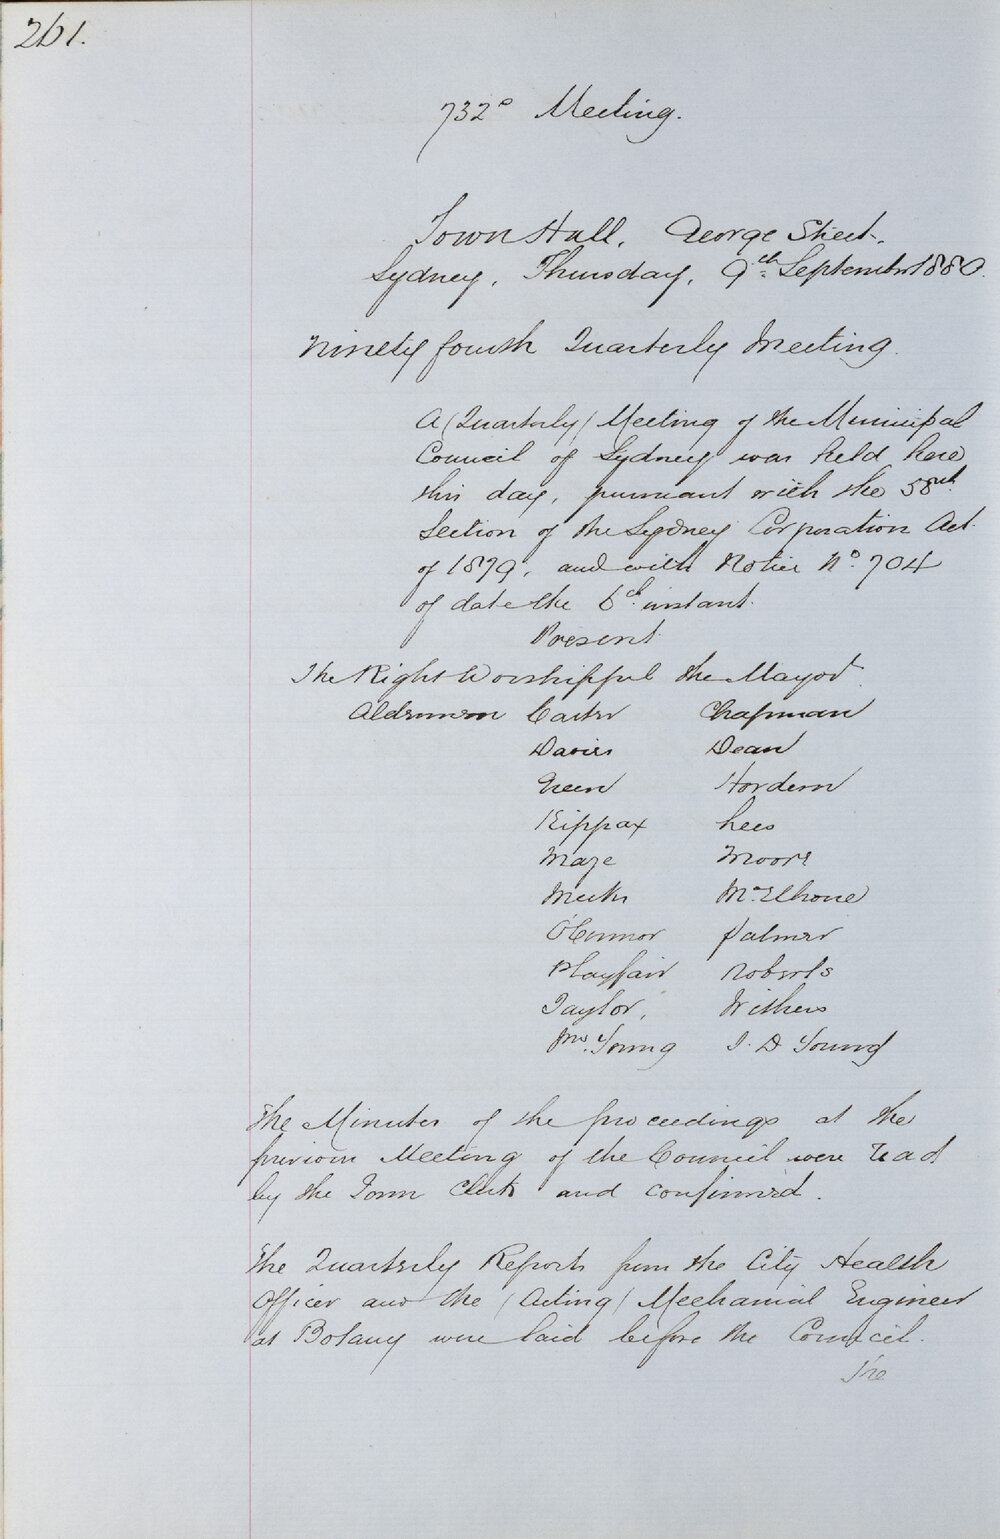 261.
732º Meeting.
Town Hall, George Street,
Sydney, Thursday, 9th September 1880.
Ninety fourth Quarterly Meeting.
A (Quarterly) Meeting of the Municipal
Council of Sydney was held here
this day, pursuant with the 58th
Section of the Sydney Corporation Act
of 1879, and with Notice No. 704
of date the 6th instant.
Present
The Right Worshipful the Mayor
Aldermen Carter Chapman
Davies Dean
Green Hordern
Kippax Lees
Maze Moore
Meeks McElhone
O'Connor Palmer
Playfair Roberts
Taylor, Withers
Jno. Young J. D Young
The Minutes of the proceedings at the
previous Meeting of the Council were read
by the Town Clerk and confirmed.
The Quarterly Reports from the City Health
Officer and the (Acting) Mechanical Engineer
at Botany were laid before the Council.
The